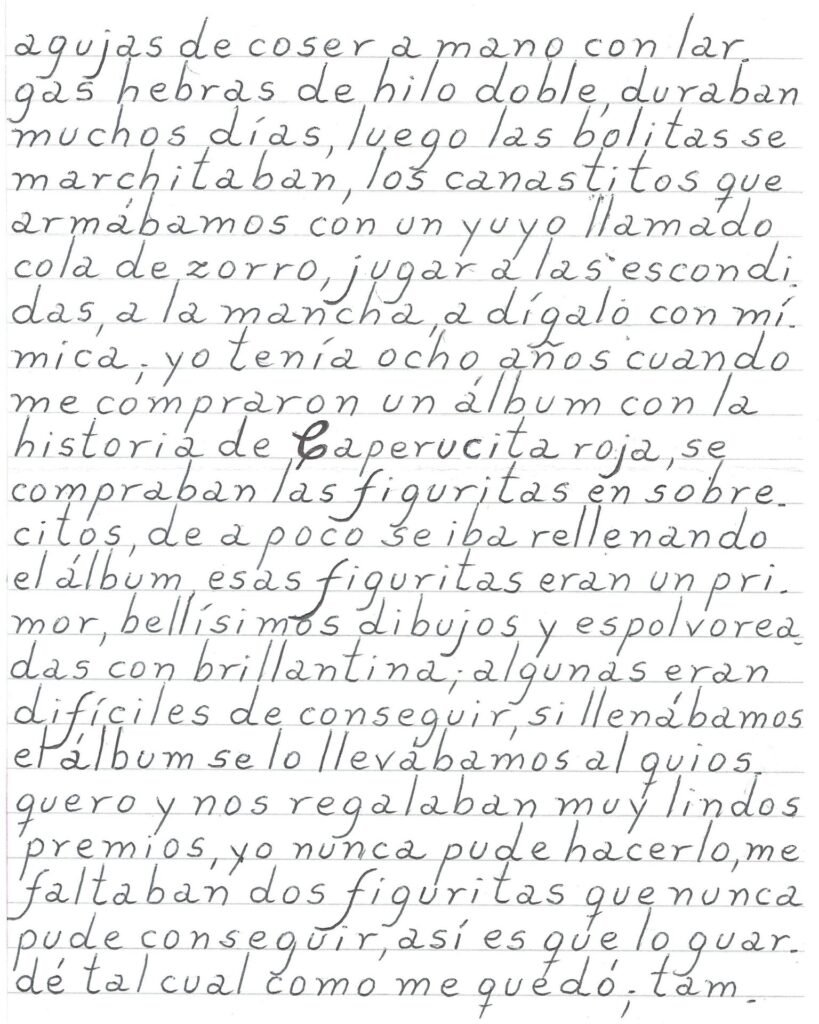 agujas de coser a mano con lar-
gas hebras de hilo doble, duraban
muchos días, luego las bolitas se
marchitaban, los canastitos que
armábamos con un yuyo llamado
cola de zorro, jugar a las escondi-
das, a la mancha, a dígalo con mí-
mica; yo tenía ocho años cuando
me compraron un álbum con la
historia de Caperucita roja, se
compraban las figuritas en sobre-
citos, de a poco se iba rellenando
el álbum, esas figuritas eran un pri-
mor, bellísimos dibujos y espolvorea-
das con brillantina; algunas eran
difíciles de conseguir, si llenábamos
el álbum se lo llevábamos al quios-
quero y nos regalaban muy lindos
premios, yo nunca pude hacerlo, me
faltaban dos figuritas que nunca
pude conseguir, así es que lo guar-
dé tal cual como me quedó; tam-